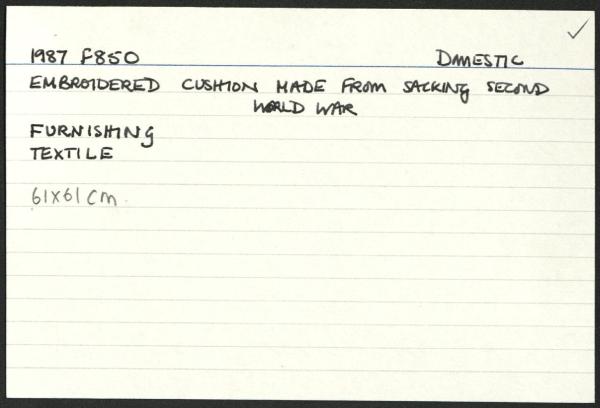 1987 F850 DOMESTIC
EMBROIDERED CUSHION MADE FROM SACKING SECOND
WORLD WAR
FURNISHING
TEXTILE
61x61 cm